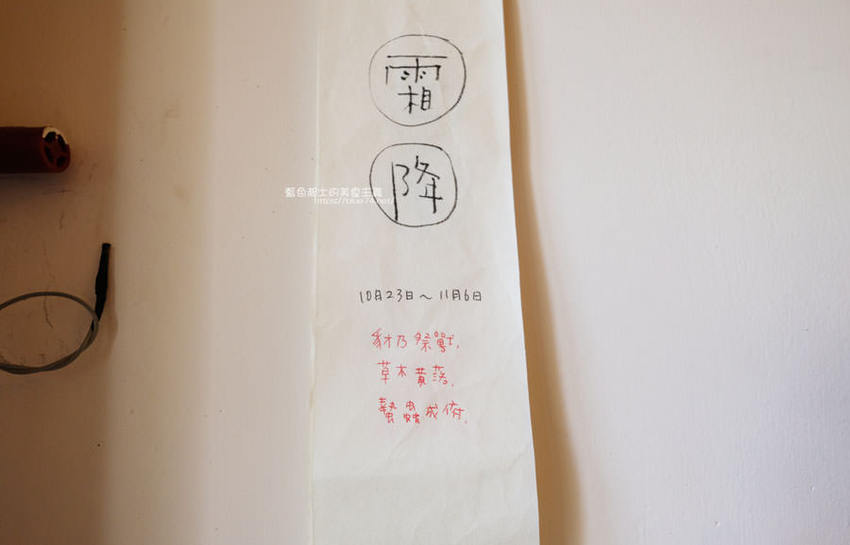 霜
降
藍色起士的美食主義
https://blue74.net/
10月23日～11月6日
豺乃祭獸,
草木黃落,
蟄蟲咸俯.